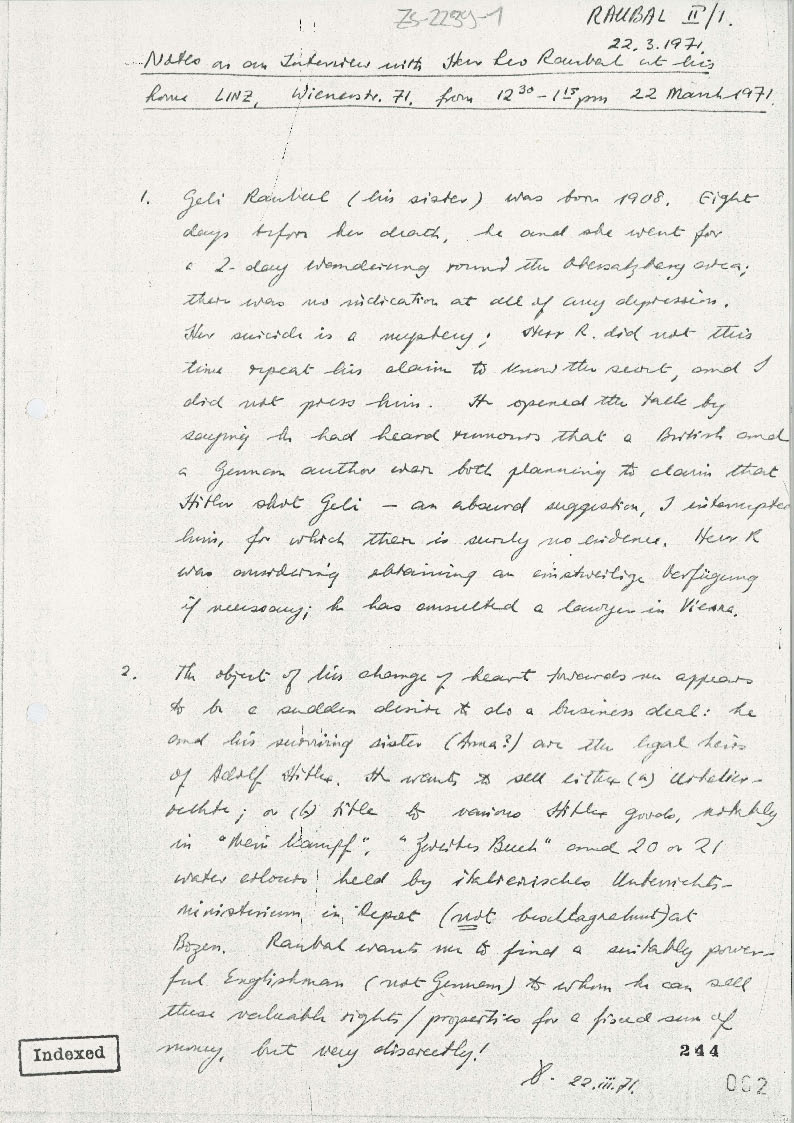 ZS-2239-1
RAUBAL II/1.
22.3.1971.
Notes on an Interview with Herr Leo Raubal at his
home LINZ, Wienerstr. 71. from 12 30 – 1 15 pm 22 March 1971.
1. Geli Raubal (his sister) was born 1908. Eight
days before her death, he and she went for
a 2-day wandering round the Obersalzberg area;
there was no indication at all of any depression.
Her suicide is a mystery; Herr R. did not this
time repeat his claim to know the secret, and I
did not press him. He opened the talk by
saying he had heard rumours that a British and
a German author were both planning to claim that
Hitler shot Geli — an absurd suggestion, I interrupted
him, for which there is surely no evidence. Herr R
was considering obtaining an einstweilige Verfügung
if necessary; he has consulted a lawyer in Vienna.
2. The object of his change of heart towards me appears
to be a sudden desire to do a business deal: he
and his surviving sister (Anna?) are the legal heirs
of Adolf Hitler. He wants to sell either (a) Urheber-
rechte; or (b) title to various Hitler goods, notably
in "Mein Kampf", "Zweites Buch" and 20 or 21
water colours held by italienisches Unterrichts-
ministerium in Depot (not beschlagnahmt) at
Bozen. Raubal wants me to find a suitably power-
ful Englishman (not German) to whom he can sell
these valuable rights/properties for a fixed sum of
money, but very discreetly!
22.iii.71.
Indexed
244
002